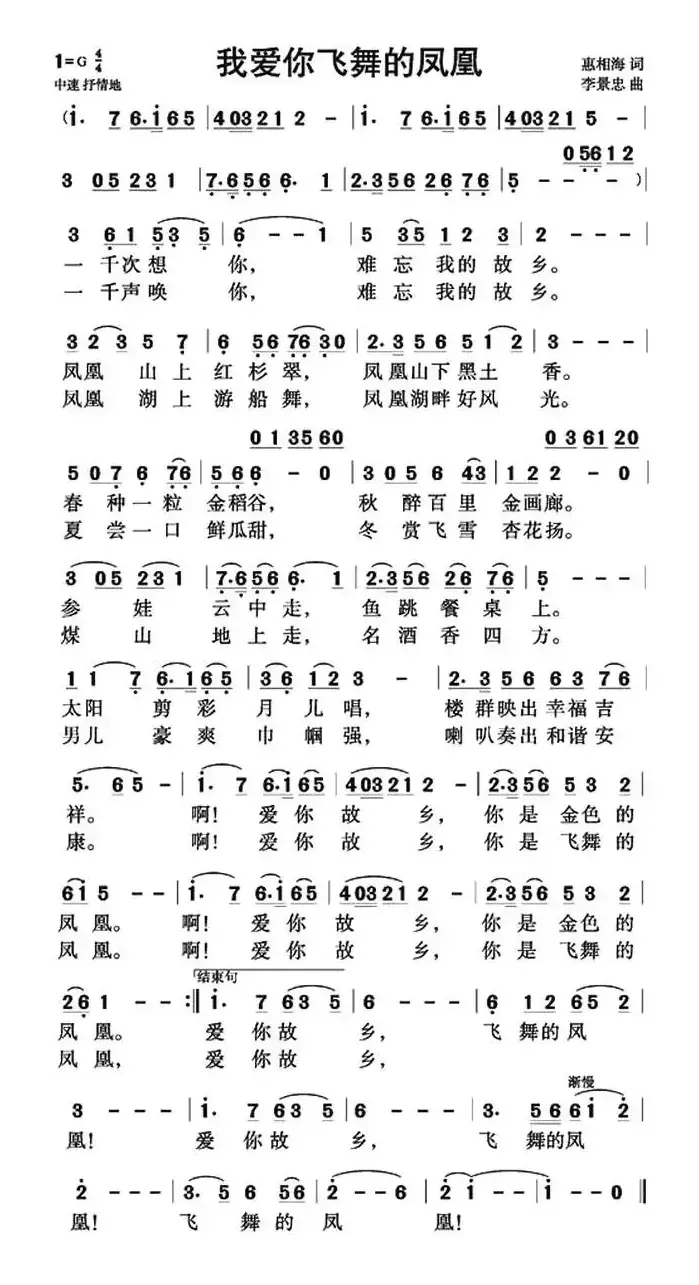 我爱你飞舞的凤凰
1=G 4/4
惠相海 词
中速 抒情地
李景忠 曲
(i· 7 6·i65 | 403212 - | i· 7 6·i65 | 403215 - |
05612
3 05 231 | 7·656 6· 1 | 2·356 26 76 | 5 - - - )|
3 61 53 5 | 6 - - 1 | 5 35 12 3 | 2 - - - |
一 千次想 你, 难 忘 我的 故 乡。
一 千声唤 你, 难 忘 我的 故 乡。
323 5 7 | 6 56 76 30 | 2·356 51 2 | 3 - - - |
凤凰 山 上 红 杉 翠, 凤凰山下黑土 香。
凤凰 湖 上 游 船 舞, 凤凰湖畔好风 光。
013560 036120
507 6 76 | 566 - 0 | 305 6 43 | 122 - 0 |
春 种一粒 金稻谷, 秋 醉百里 金画廊。
夏 尝一口 鲜瓜甜, 冬 赏飞雪 杏花扬。
3 05 231 | 7·656 6· 1 | 2·356 26 76 | 5 - - - |
参 娃 云中走, 鱼 跳 餐 桌 上。
煤 山 地上走, 名 酒 香 四 方。
11 7 6·165 | 36 12 3 - | 2·356 63 76 |
太阳 剪 彩 月 儿 唱, 楼 群映出 幸福吉
男儿 豪 爽 巾 帼 强, 喇 叭奏出 和谐安
5· 65 - | i· 7 6·i65 | 403212 - | 2·356 53 2 |
祥。 啊! 爱 你 故 乡, 你 是 金色的
康。 啊! 爱 你 故 乡, 你 是 飞舞的
6i 5 - - | i· 7 6·i65 | 403212 - | 2·356 53 2 |
凤 凰。 啊! 爱 你 故 乡, 你 是 金色的
凤 凰。 啊! 爱 你 故 乡, 你 是 飞舞的
结束句
26 1 - - :‖ i· 7 63 5 | 6 - - - | 6 12 65 2 |
凤 凰。 爱 你故 乡, 飞 舞的 凤
凤 凰, 爱 你故 乡,
渐慢
3 - - - | i· 7 63 5 | 6 - - - | 3· 56 6i 2 |
凰! 爱 你故 乡, 飞 舞的凤
2 - - - | 3· 5 6 56 | 2 - - 6 | 2 i - - | i - - 0 ‖
凰! 飞 舞 的 凤 凰!